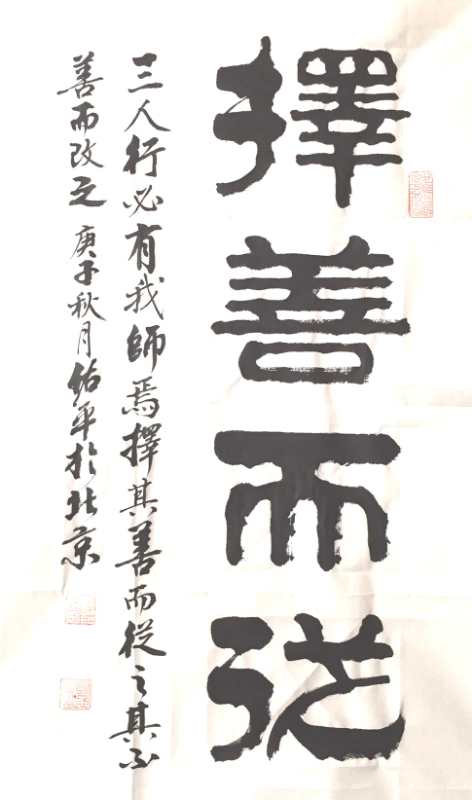 擇善而從
三人行必有我師焉擇其善而從之其不
善而改之 庚子秋月佑平於北京